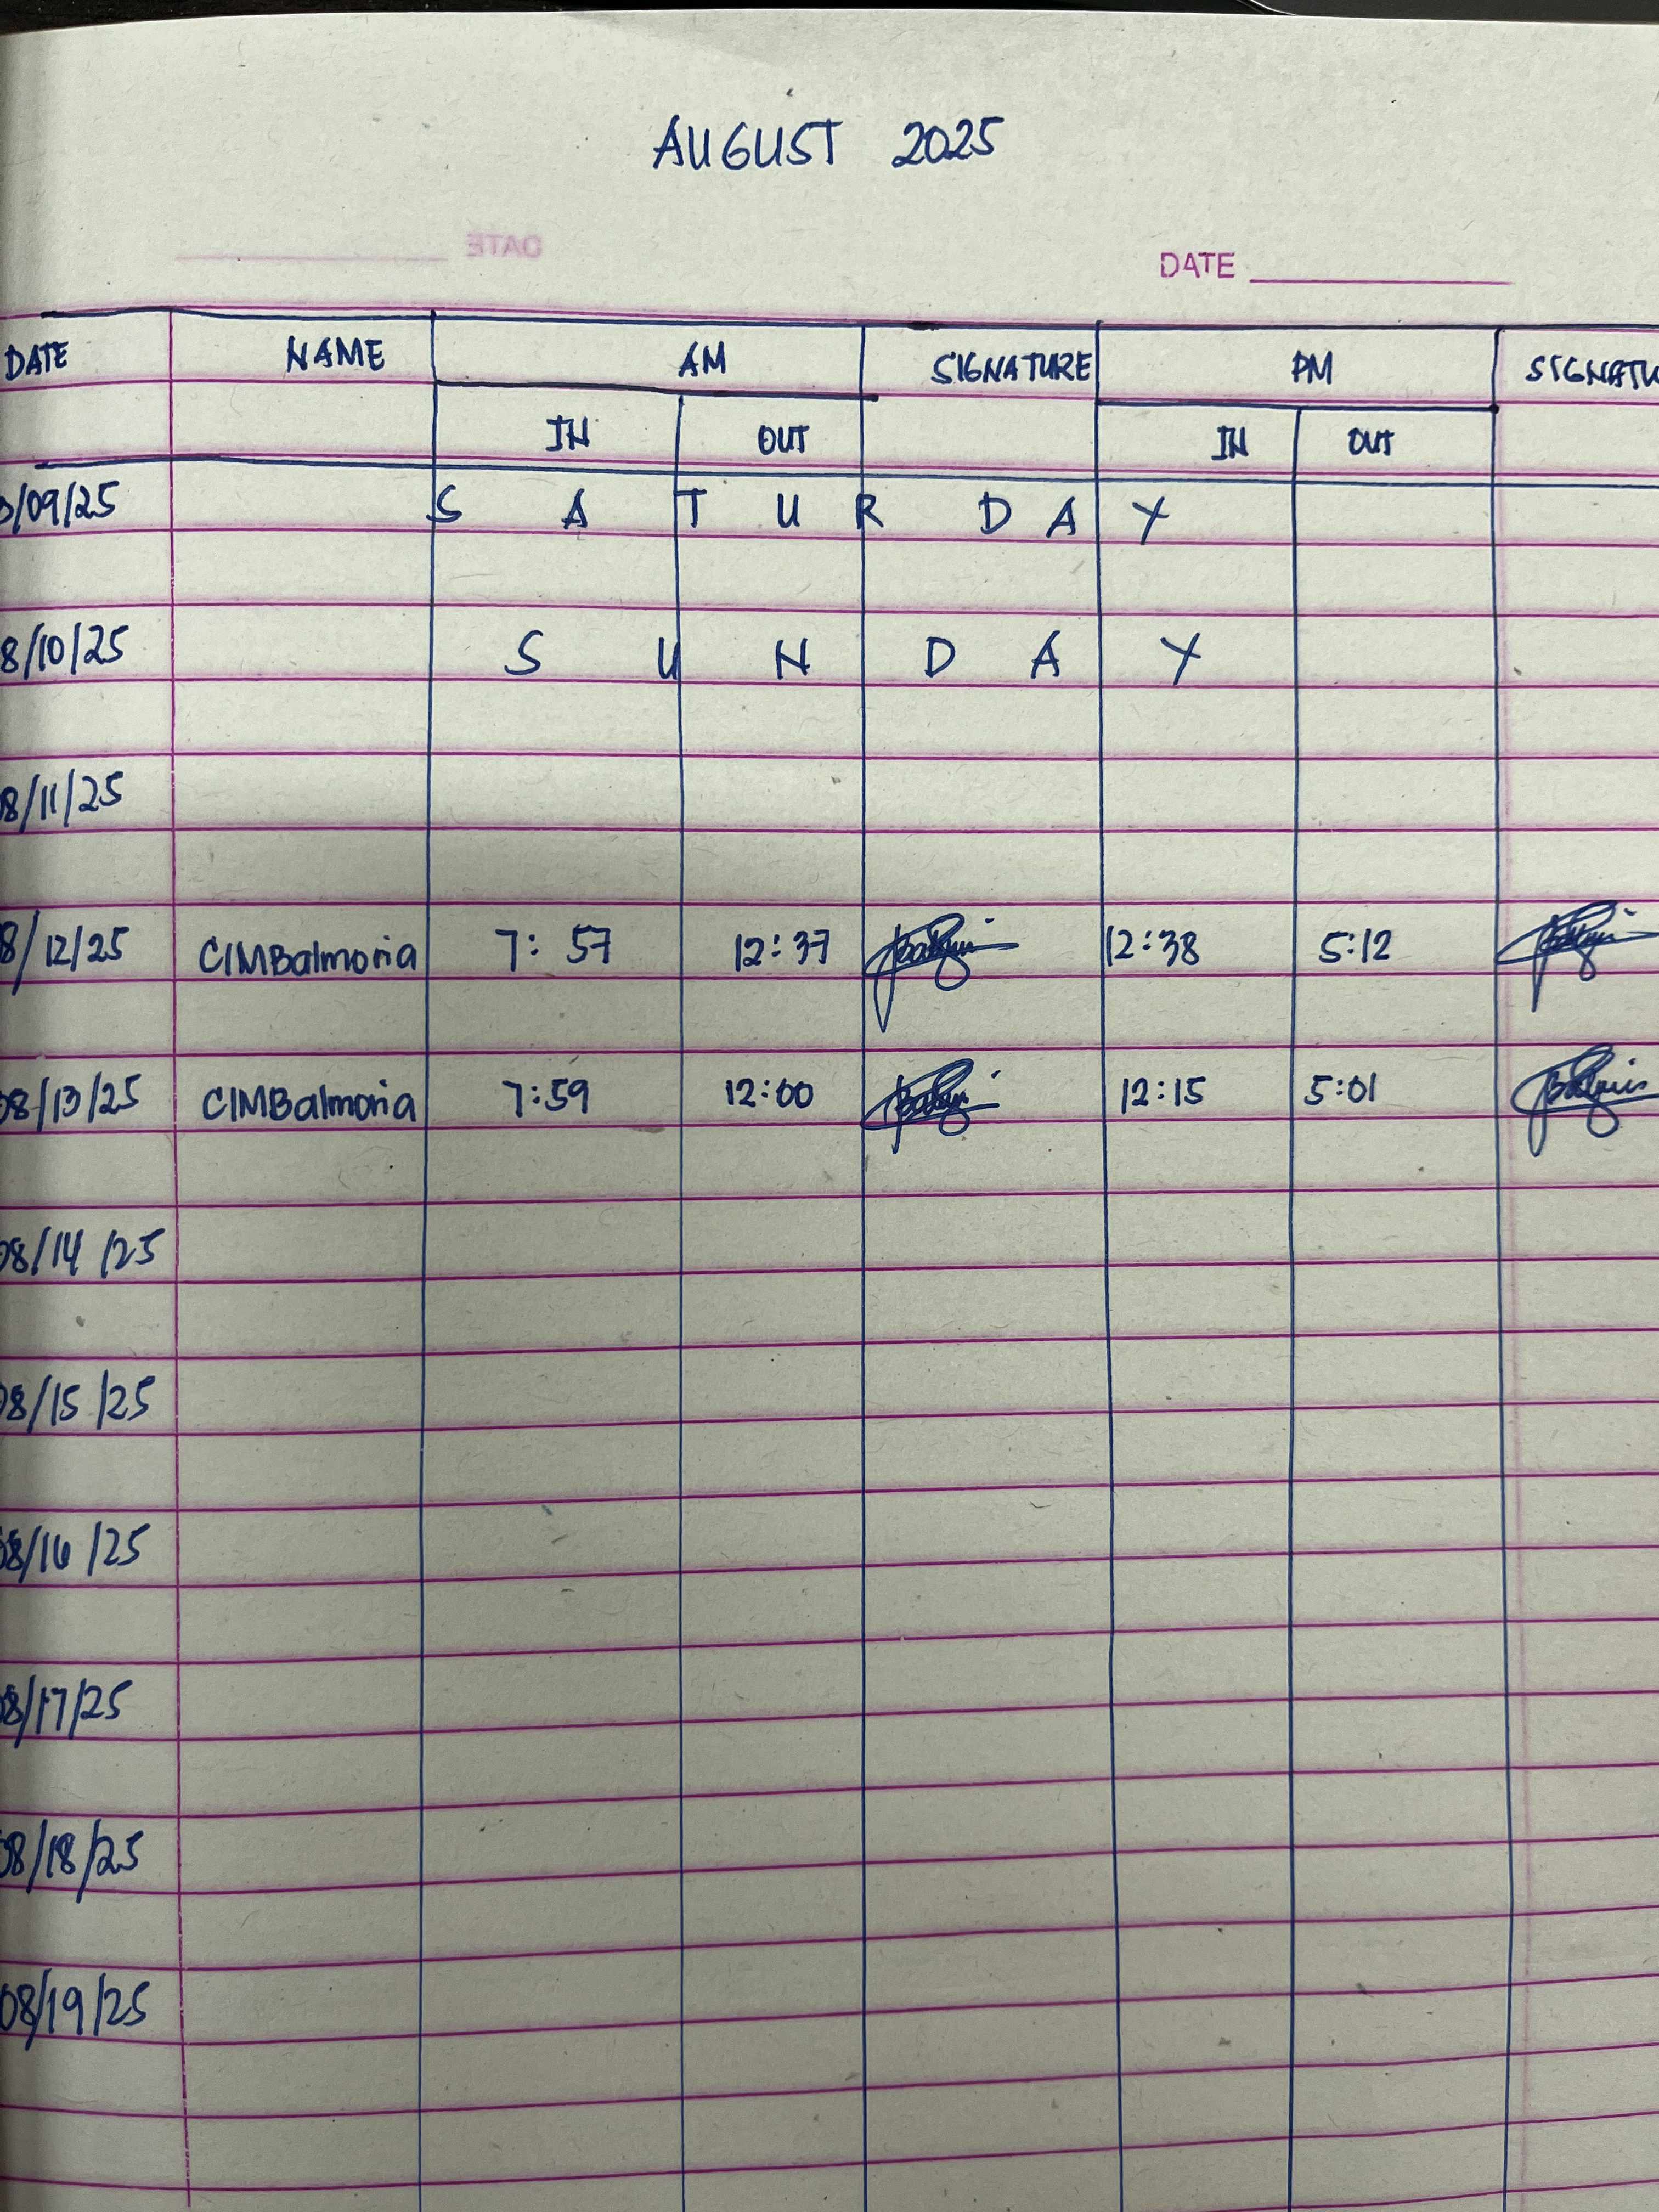 AUGUST 2025
DATE
DATE
DATE NAME AM SIGNATURE PM SIGNATU
IN OUT IN OUT
/09/25 S A T U R D A Y
8/10/25 S U N D A Y
08/11/25
8/12/25 CIMBalmoria 7:57 12:37 12:38 5:12
08/13/25 CIMBalmoria 7:59 12:00 12:15 5:01
08/14/25
08/15/25
08/16/25
08/17/25
08/18/25
08/19/25